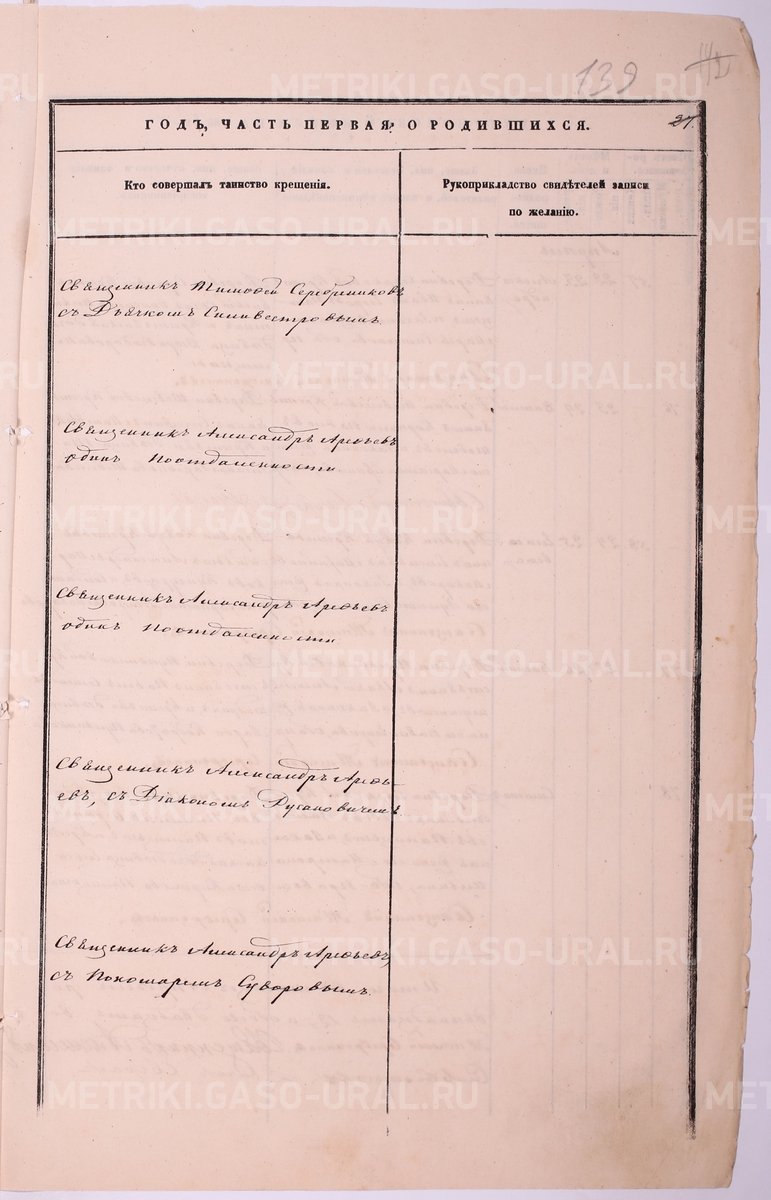 139
ГОДЪ, ЧАСТЬ ПЕРВАЯ, О РОДИВШИХСЯ.
27.
Кто совершалъ таинство крещенія.
Рукоприкладство свидѣтелей записи
по желанію.
Священникъ Тимоѳей Серебрениковъ
съ Дьячкомъ Сильвестровымъ.
Священникъ Александръ Арефьевъ
одинъ поотдаленности
Священникъ Александръ Арефьевъ
одинъ поотдаленности
Священникъ Александръ Арефь-
евъ, съ Діакономъ Русановичемъ
Священникъ Александръ Арефьевъ,
съ Пономаремъ Суворовымъ.
METRIKI.GASO-URAL.RU